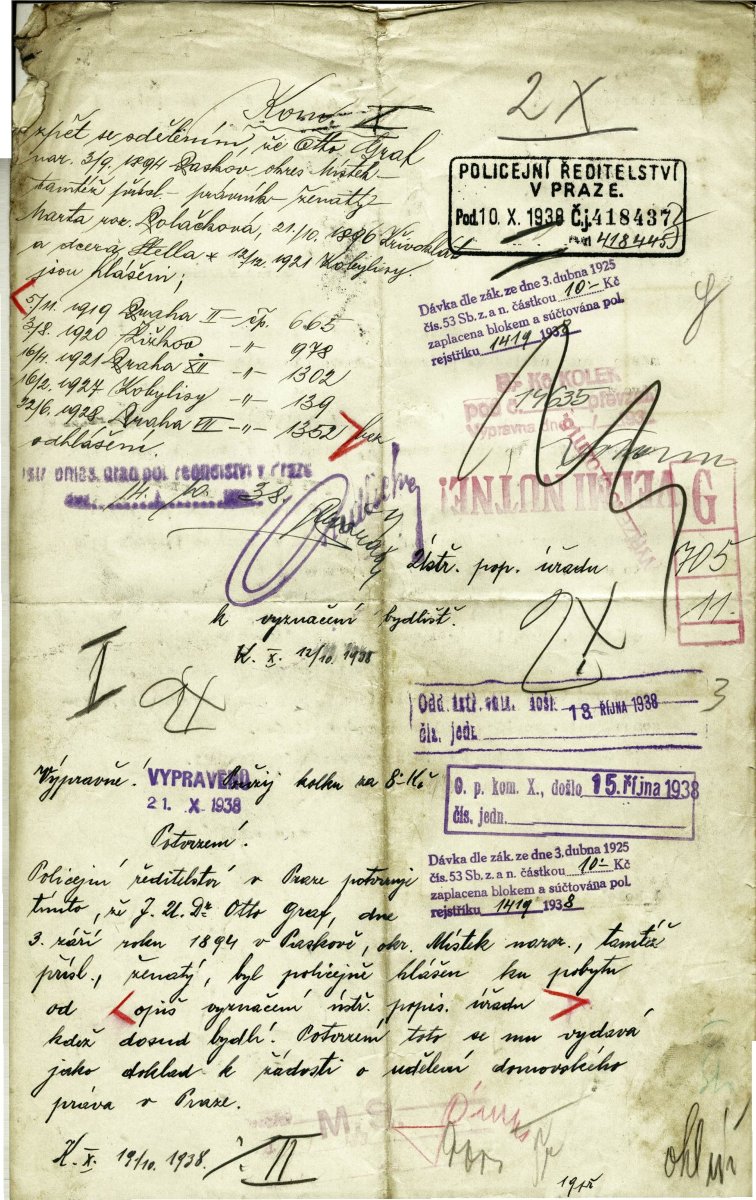 Kom. X
2 X
zpět se sdělením, že Otto Graf
nar. 3/9. 1894 Paskov okres Místek
tamtéž přísl. právník ženatý
Marta roz. Poláčková, 21/10. 1896 Křivoklát
a dcera Stella * 12/12. 1921 Kobylisy
jsou hlášeni;
5/11. 1919 Praha II – čp. 665
3/8. 1920 Žižkov -"- 978
16/4. 1921 Praha XII -"- 1302
16/2. 1927 Kobylisy -"- 139
22/6. 1928 Praha VII -"- 1352 bez
odhlášení.
POLICEJNÍ ŘEDITELSTVÍ
V PRAZE.
Pod. 10. X. 1938 Č.j. 418437
418445
Dávka dle zák. ze dne 3. dubna 1925
čís. 53 Sb. z. a n. částkou 10.- Kč
zaplacena blokem a súčtována pol.
rejstříku 1419 1938
KOLEK
14635
pod č. převzal
Výpravna dne
VELMI NUTNÉ!
G
705
11.
řed. pol. ředitelství v Praze
14. 10. 38.
Ústř. pop. úřadu
k vyznačení bydlišť.
K. X. 12/10. 1938
I
2X
2X
3
Odd. došl. 18. ŘÍJNA 1938
čís. jedn.
O. p. kom. X., došlo 15. října 1938
čís. jedn.
Výpravně! VYPRAVENO kolku za 8.- Kč
21. X 1938
Dávka dle zák. ze dne 3. dubna 1925
čís. 53 Sb. z. a n. částkou 10.- Kč
zaplacena blokem a súčtována pol.
rejstříku 1419 1938
Potvrzení.
Policejní ředitelství v Praze potvrzuje
tímto, že J. U. Dr Otto Graf, dne
3. září roku 1894 v Paskově, okr. Místek naroz., tamtéž
přísl., ženatý, byl policejně hlášen ku pobytu
od opis vyznačení ústř. popis. úřadu
kdež dosud bydlí. Potvrzení toto se mu vydává
jako doklad k žádosti o udělení domovského
práva v Praze.
M. S.
K. X. 19/10. 1938.
II